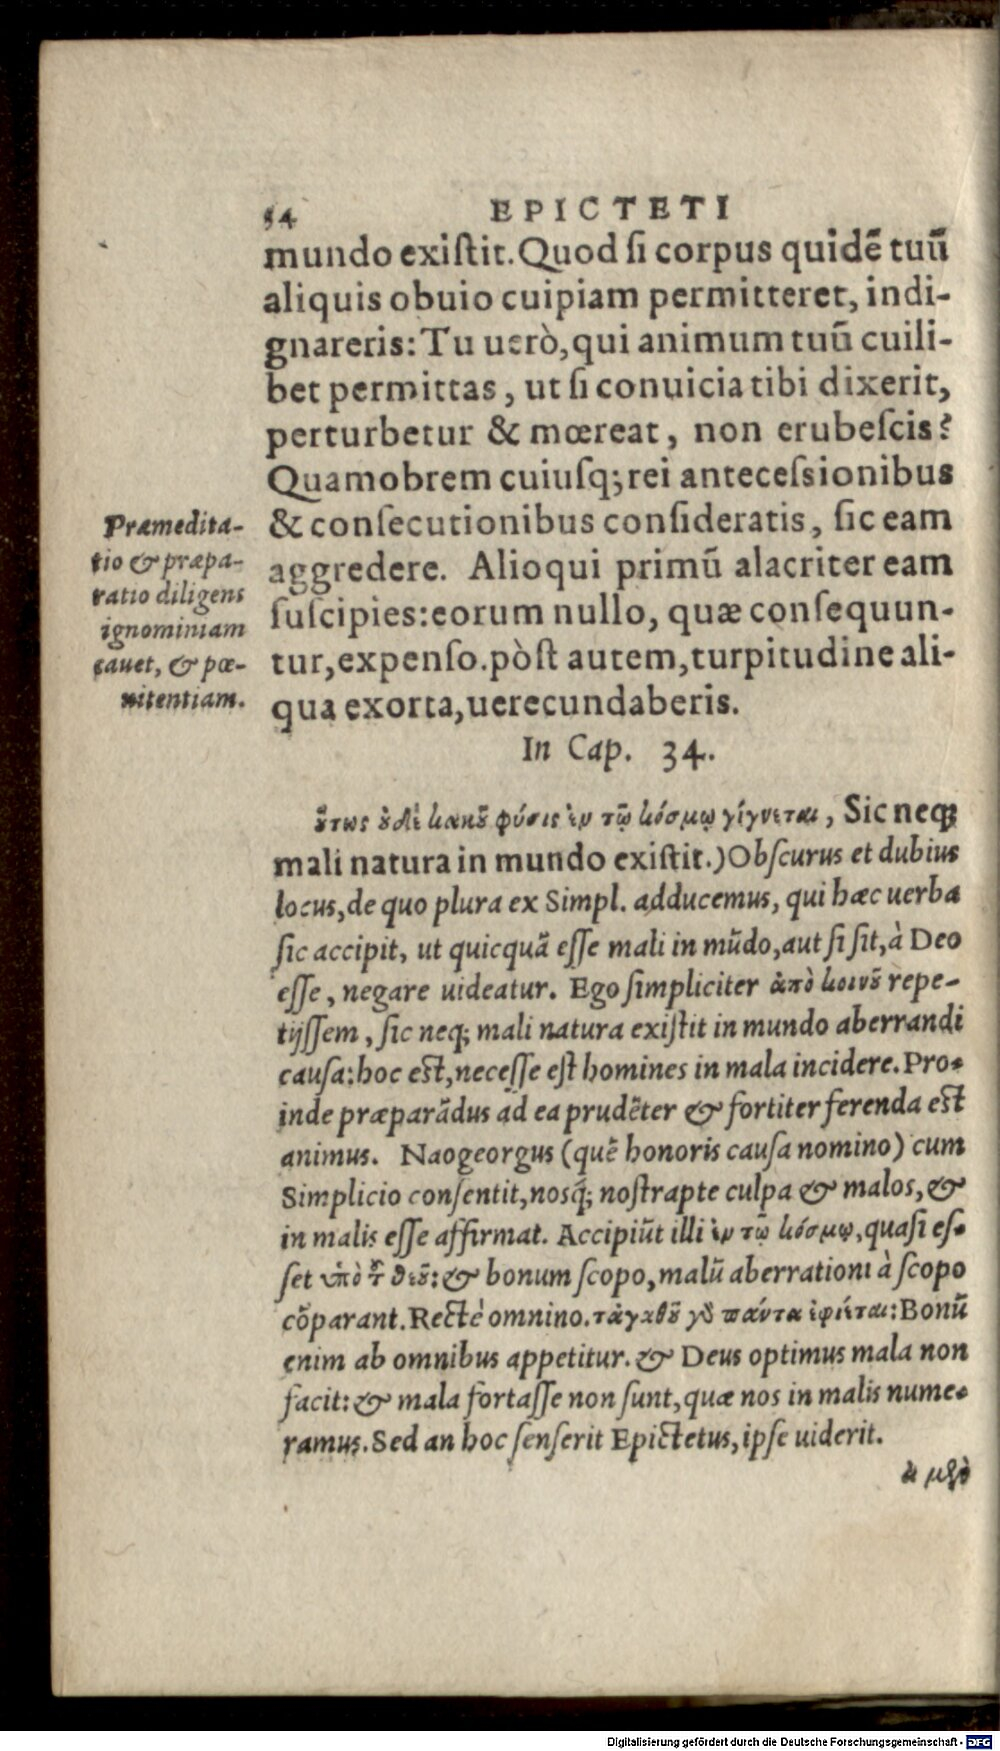 54 EPICTETI
mundo existit. Quod si corpus quidẽ tuũ
aliquis obuio cuipiam permitteret, indi-
gnareris: Tu uerò, qui animum tuũ cuili-
bet permittas, ut si conuicia tibi dixerit,
perturbetur & mœreat, non erubescis?
Quamobrem cuiusq; rei antecessionibus
& consecutionibus consideratis, sic eam
aggredere. Alioqui primũ alacriter eam
suscipies: eorum nullo, quæ consequun-
tur, expenso. pòst autem, turpitudine ali-
qua exorta, uerecundaberis.
Præmedita-
tio & præpa-
ratio diligens
ignominiam
cauet, & pœ-
nitentiam.
In Cap. 34.
ȣ̔́τως ȣ̓δὲ κακȣ͂ φύσις ἐν τῷ κόσμῳ γίγνεται, Sic neq;
mali natura in mundo existit.) Obscurus et dubius
locus, de quo plura ex Simpl. adducemus, qui hæc uerba
sic accipit, ut quicquã esse mali in mũdo, aut si sit, à Deo
esse, negare uideatur. Ego simpliciter ἀπὸ κοινȣ͂ repe-
tijssem, sic neq; mali natura existit in mundo aberrandi
causa: hoc est, necesse est homines in mala incidere. Pro-
inde præparãdus ad ea prudẽter & fortiter ferenda est
animus. Naogeorgus (quẽ honoris causa nomino) cum
Simplicio consentit, nosq́; nostrapte culpa & malos, &
in malis esse affirmat. Accipiũt illi ἐν τῷ κόσμῳ, quasi es-
set ὑπὸ τȣ͂ θεȣ͂: & bonum scopo, malũ aberrationi à scopo
cõparant. Rectè omnino. τἀγαθȣ͂ γὸ πάντα ἐφίεται: Bonũ
enim ab omnibus appetitur. & Deus optimus mala non
facit: & mala fortasse non sunt, quæ nos in malis nume-
ramus. Sed an hoc senserit Epictetus, ipse uiderit.
Digitalisierung gefördert durch die Deutsche Forschungsgemeinschaft - DFG